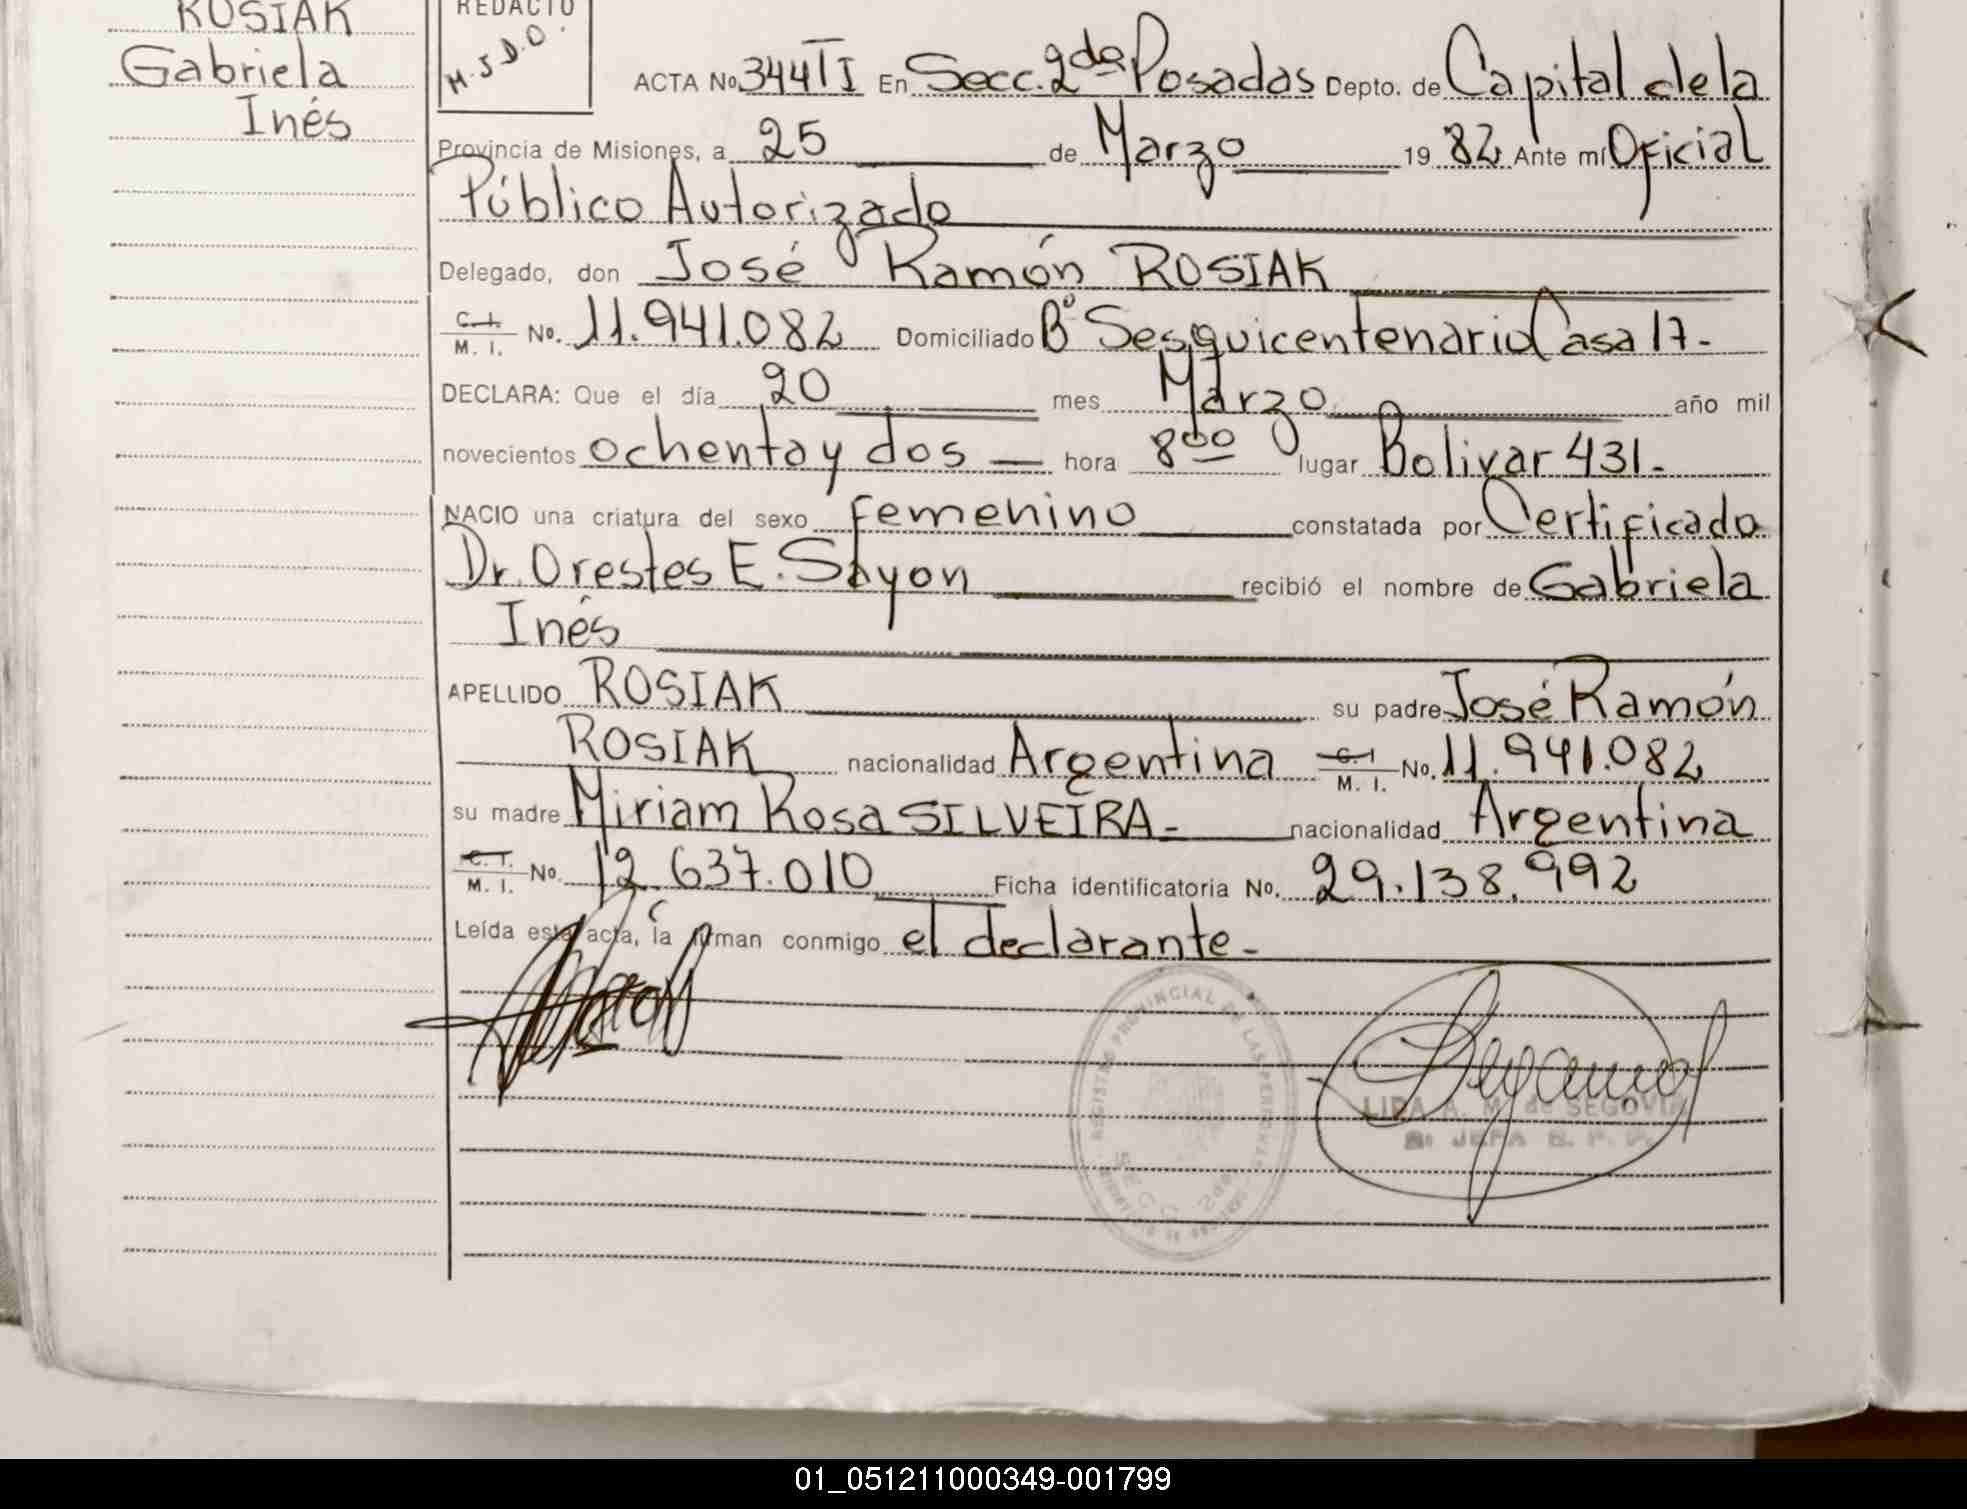 ROSIAK
Gabriela
Inés
REDACTO
M.J.D.O.
ACTA No. 344 TI En Secc. 2da Posadas Depto. de Capital de la
Provincia de Misiones, a 25 de Marzo 1982 Ante mí Oficial
Público Autorizado
Delegado, don José Ramón ROSIAK
C.I. M. I. No. 11.941.082 Domiciliado Bº Sesquicentenario Casa 17-
DECLARA: Que el día 20 mes Marzo año mil
novecientos ochenta y dos hora 8 00 lugar Bolivar 431.-
NACIO una criatura del sexo femenino constatada por Certificado
Dr. Orestes E. Sayon recibió el nombre de Gabriela
Inés
APELLIDO ROSIAK su padre José Ramón
ROSIAK nacionalidad Argentina C.I M. I. No. 11.941.082
su madre Miriam Rosa SILVEIRA- nacionalidad Argentina
C.I. M. I. No. 12.637.010 Ficha identificatoria No. 29.138.992
Leída este acta, la firman conmigo el declarante-
REGISTRO PROVINCIAL DE LAS PERSONAS
SECC. 2da
LIDA A. M. de SEGOVIA
JEFA
01_051211000349-001799